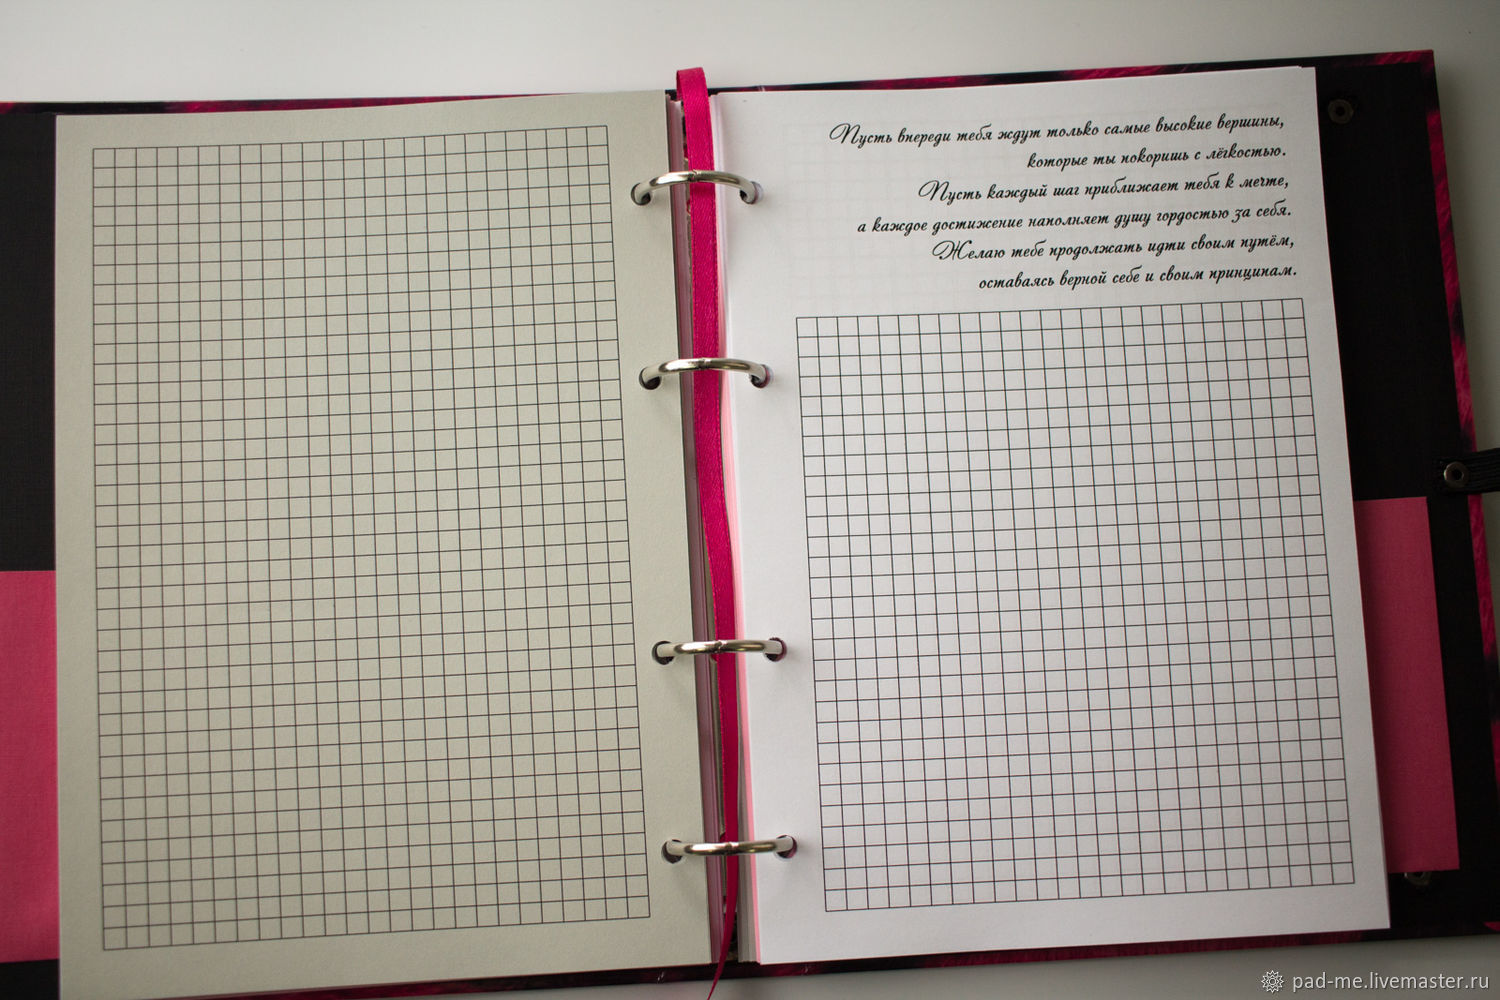 Пусть впереди тебя ждут только самые высокие вершины,
которые ты покоришь с лёгкостью.
Пусть каждый шаг приближает тебя к мечте,
а каждое достижение наполняет душу гордостью за себя.
Желаю тебе продолжать идти своим путём,
оставаясь верной себе и своим принципам.
pad-me.livemaster.ru